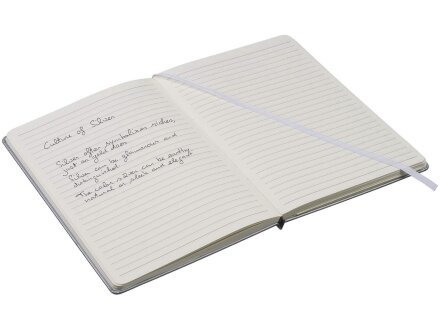 Culture of Silver
Silver often symbolizes riches,
just as gold does.
Silver can be glamourous and
distinguished.
The color silver can be earthy,
natural or sleek and elegant.